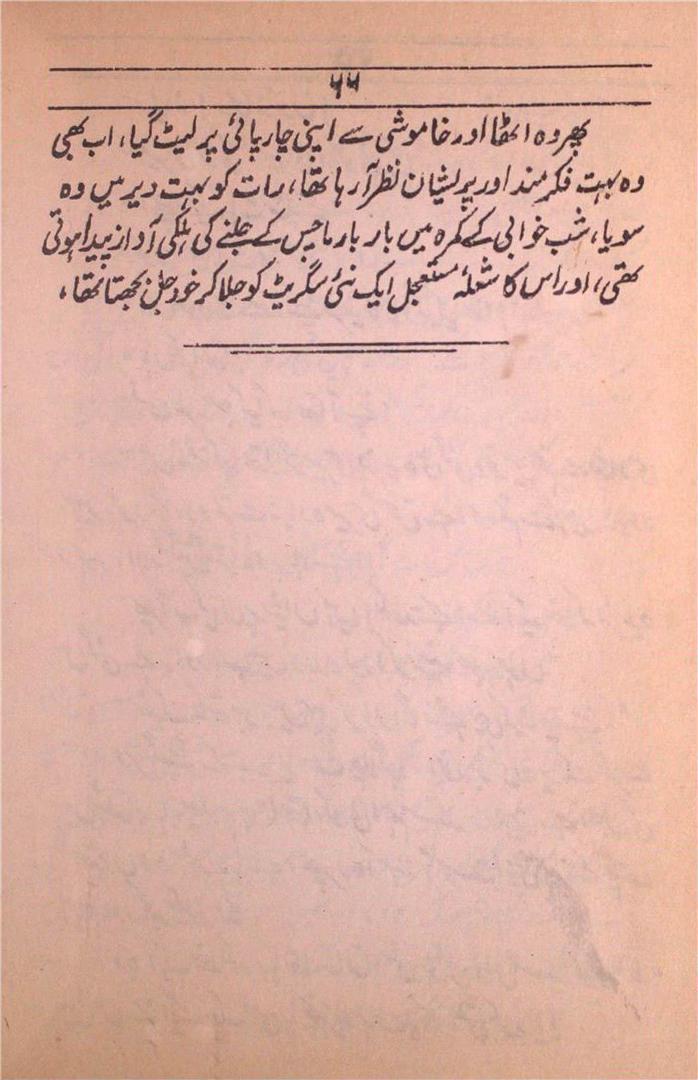 ۶۶
پھر وہ اٹھا اور خاموشی سے اپنی چارپائی پر لیٹ گیا، اب بھی
وہ بہت فکر مند اور پریشان نظر آ رہا تھا، رات کو بہت دیر میں وہ
سویا، شب خوابی کے کمرہ میں بار بار ماچس کے جلنے کی ہلکی آواز پیدا ہوتی
تھی، اور اس کا شعلۂ مستعجل ایک نئی سگریٹ کو جلا کر خود جل بجھتا تھا،